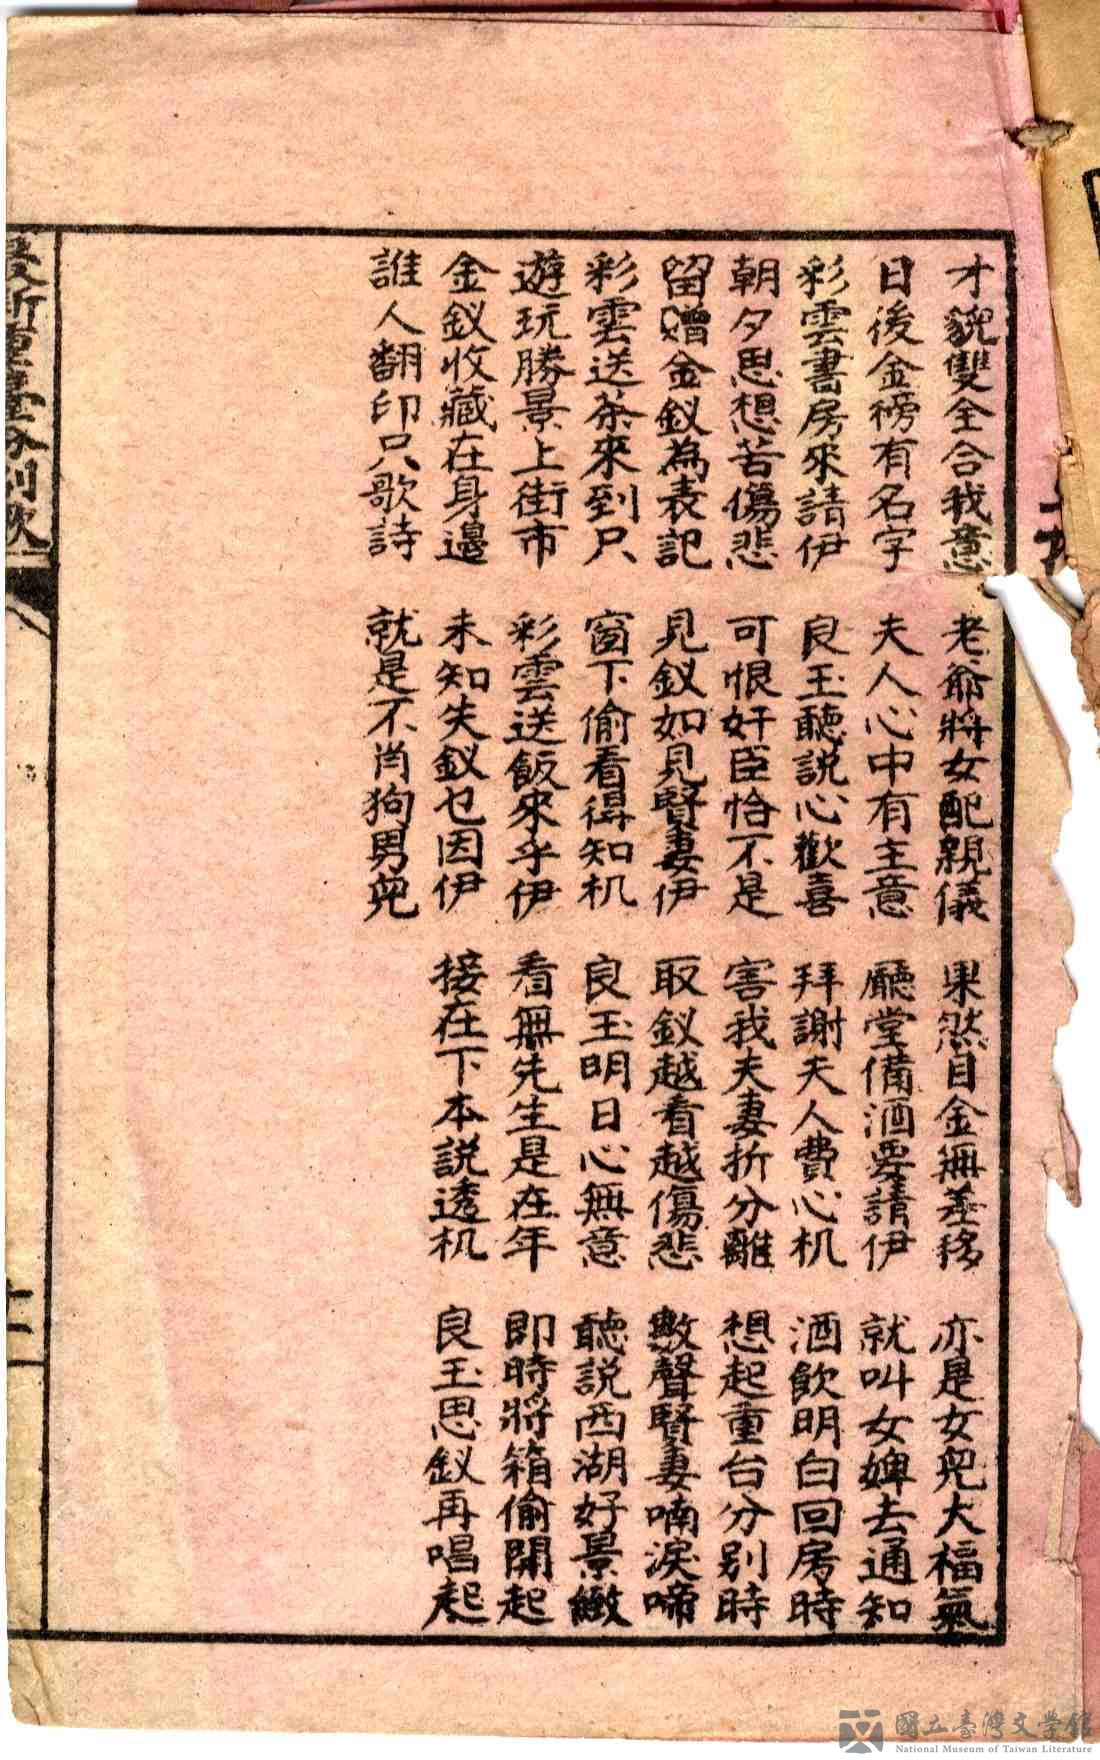 才貌雙全合我意　老爺將女配親儀　果然目金無差移　亦是女兒大福氣
日後金榜有名字　夫人心中有主意　廳堂備酒要請伊　就叫女婢去通知
彩雲書房來請伊　良玉聽說心歡喜　拜謝夫人費心机　酒飲明白回房時
朝夕思想苦傷悲　可恨奸臣恰不是　害我夫妻折分離　想起重台分別時
留贈金釵為表記　見釵如見賢妻伊　取釵越看越傷悲　數聲賢妻喃淚啼
彩雲送茶來到只　窗下偷看得知机　良玉明日心無意　聽說西湖好景緻
遊玩勝景上街市　彩雲送飯來乎伊　看無先生是在年　即時將箱偷開起
金釵收藏在身邊　未知失釵乜因伊　接在下本說透机　良玉思釵再唱起
誰人翻印只歌詩　就是不肖狗男兒
最新重臺分別歌
十一
國立臺灣文學館
National Museum of Taiwan Literature